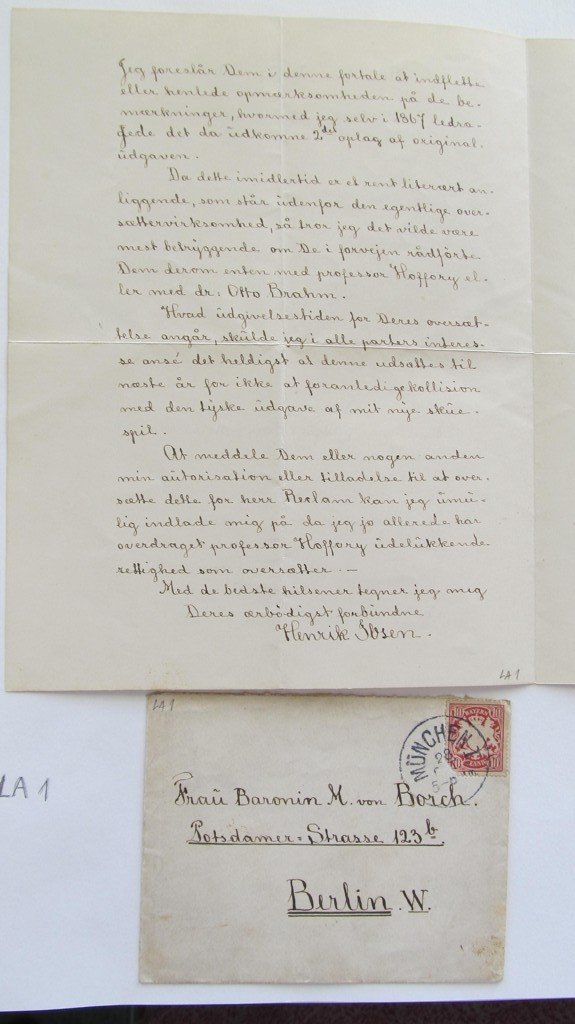 Jeg foreslår Dem i denne fortale at indflette
eller henlede opmærksomheden på de be-
mærkninger, hvormed jeg selv i 1867 ledsa-
gede det da udkomne 2det oplag af original-
udgaven.
Da dette imidlertid er et rent literært an-
liggende, som står udenfor den egentlige over-
sættervirksomhed, så tror jeg det vilde være
mest betryggende om De i forvejen rådførte
Dem derom enten med professor Hoffory el-
ler med dr: Otto Brahm.
Hvad udgivelsestiden for Deres oversæt-
telse angår, skulde jeg i alle parters interes-
se ansé det heldigst at denne udsættes til
næste år for ikke at foranledige kollision
med den tyske udgave af mit nye skue-
spil.
At meddele Dem eller nogen anden
min autorisation eller tilladelse til at over-
sætte dette for herr Reclam kan jeg umu-
lig indlade mig på da jeg jo allerede har
overdraget professor Hoffory udelukkende
rettighed som oversætter. —
Med de bedste hilsener tegner jeg mig
Deres ærbødigst forbundne
Henrik Ibsen.
LA 1
LA 1
BAYERN
10 10
MÜNCHEN
Frau Baronin M. von Borch.
Potsdamer-Strasse 123 b.
Berlin. W.
LA 1